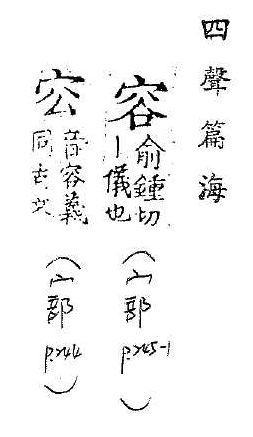 四聲篇海
容 俞鍾切
丨儀也
(宀部 p.245-1)
㝐 音容義
同古文
(宀部 p.244)